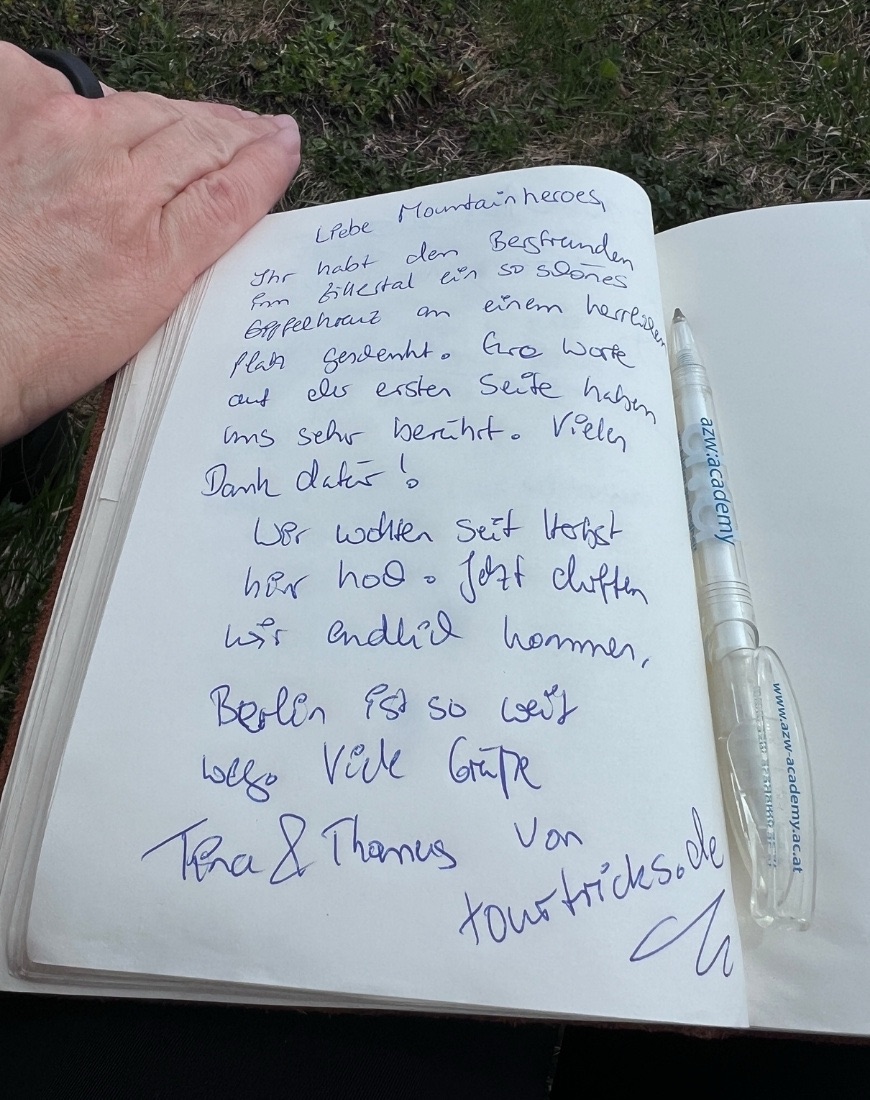 Liebe Mountainheroes,
Ihr habt den Bergfreunden
im Zillertal ein so schönes
Gipfelkreuz an einem herrlichen
Platz geschenkt. Eure Worte
auf der ersten Seite haben
uns sehr berührt. Vielen
Dank dafür!
Wir wollten seit Herbst
hier hoch. Jetzt durften
wir endlich kommen,
Berlin ist so weit
weg. Viele Grüße
Tina & Thomas von
tourtricks.de
azw:academy
www.azw-academy.ac.at